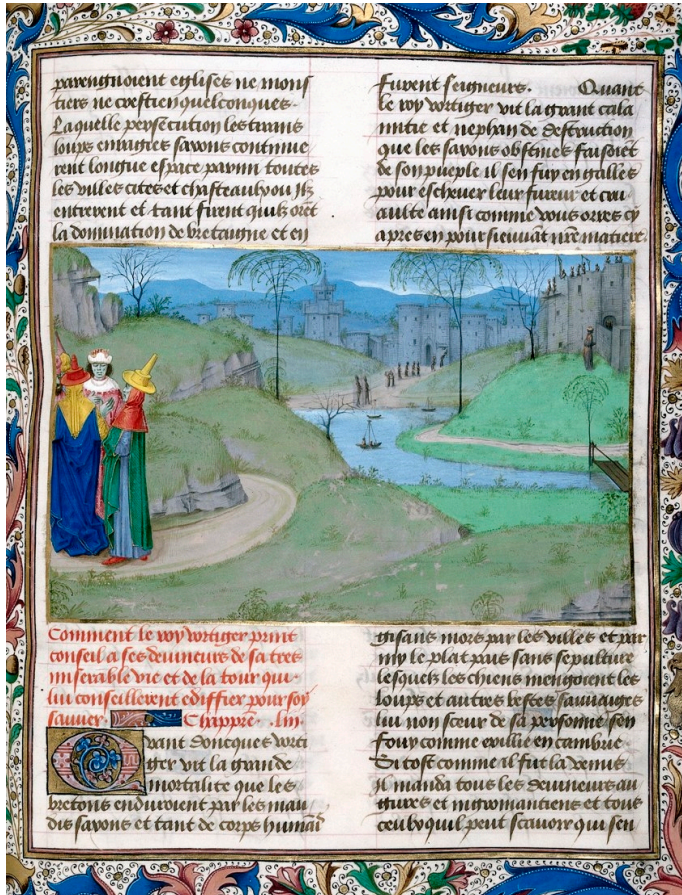 parengnoient eglises ne mons
tiers ne crestien quelconques.
Laquelle persecution les tirans
loups enragies saxons continue
rent longue espace parmi toutes
les villes cites et chasteaulx ou ilz
entrerent et tant furent quilz oret
la domination de bretaigne et en
furent seigneurs. Quant
le roy vortiger vit la grant cala
mite et de destruction
que les saxons obstines faisoiet
de son pueple il sen fuy en galles
pour eschever leur fureur et cru
aulte ainsi comme vous orres cy
apres en poursieuvant nre matiere.
Comment le roy vortiger print
conseil a ses devineurs de sa tres
miserable vie et de la tour qui
lui conseillerent ediffier pour soy
sauver. Chappre. .liii.
Quant doncques vorti
ger vit la grande
mortalite que les
bretons enduroient par les mau
dis saxons et tant de corps humai
gisans mors par les villes et par
my le plat pais sans sepulture
lesquels les chiens mengoient les
loups et autres bestes sauvaiges
lui non sceur de sa personne sen
fouy comme exillie en cambrie.
Si tost comme il fut la venus
il manda tous les devineurs au
gures et nigromantiens et tous
ceulx quil peut scavoir qui sen